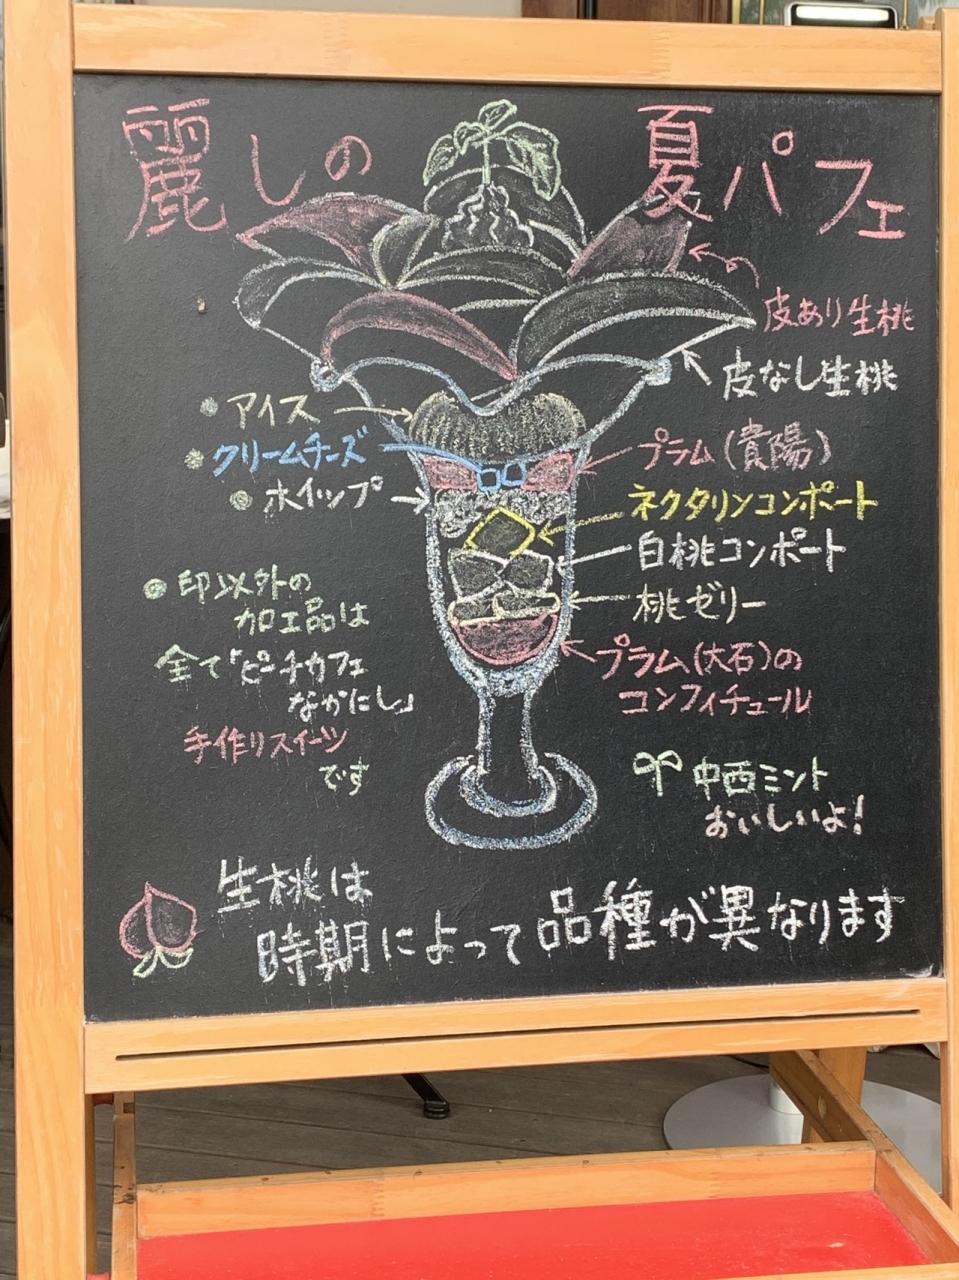 麗しの 夏パフェ
皮あり生桃
皮なし生桃
●アイス
●クリームチーズ
●ホイップ
プラム(貴陽)
ネクタリンコンポート
白桃コンポート
桃ゼリー
プラム(大石)の
コンフィチュール
●印以外の
加工品は
全て「ピーチカフェ
なかにし」
手作りスイーツ
です
中西ミント
おいしいよ!
生桃は
時期によって品種が異なります